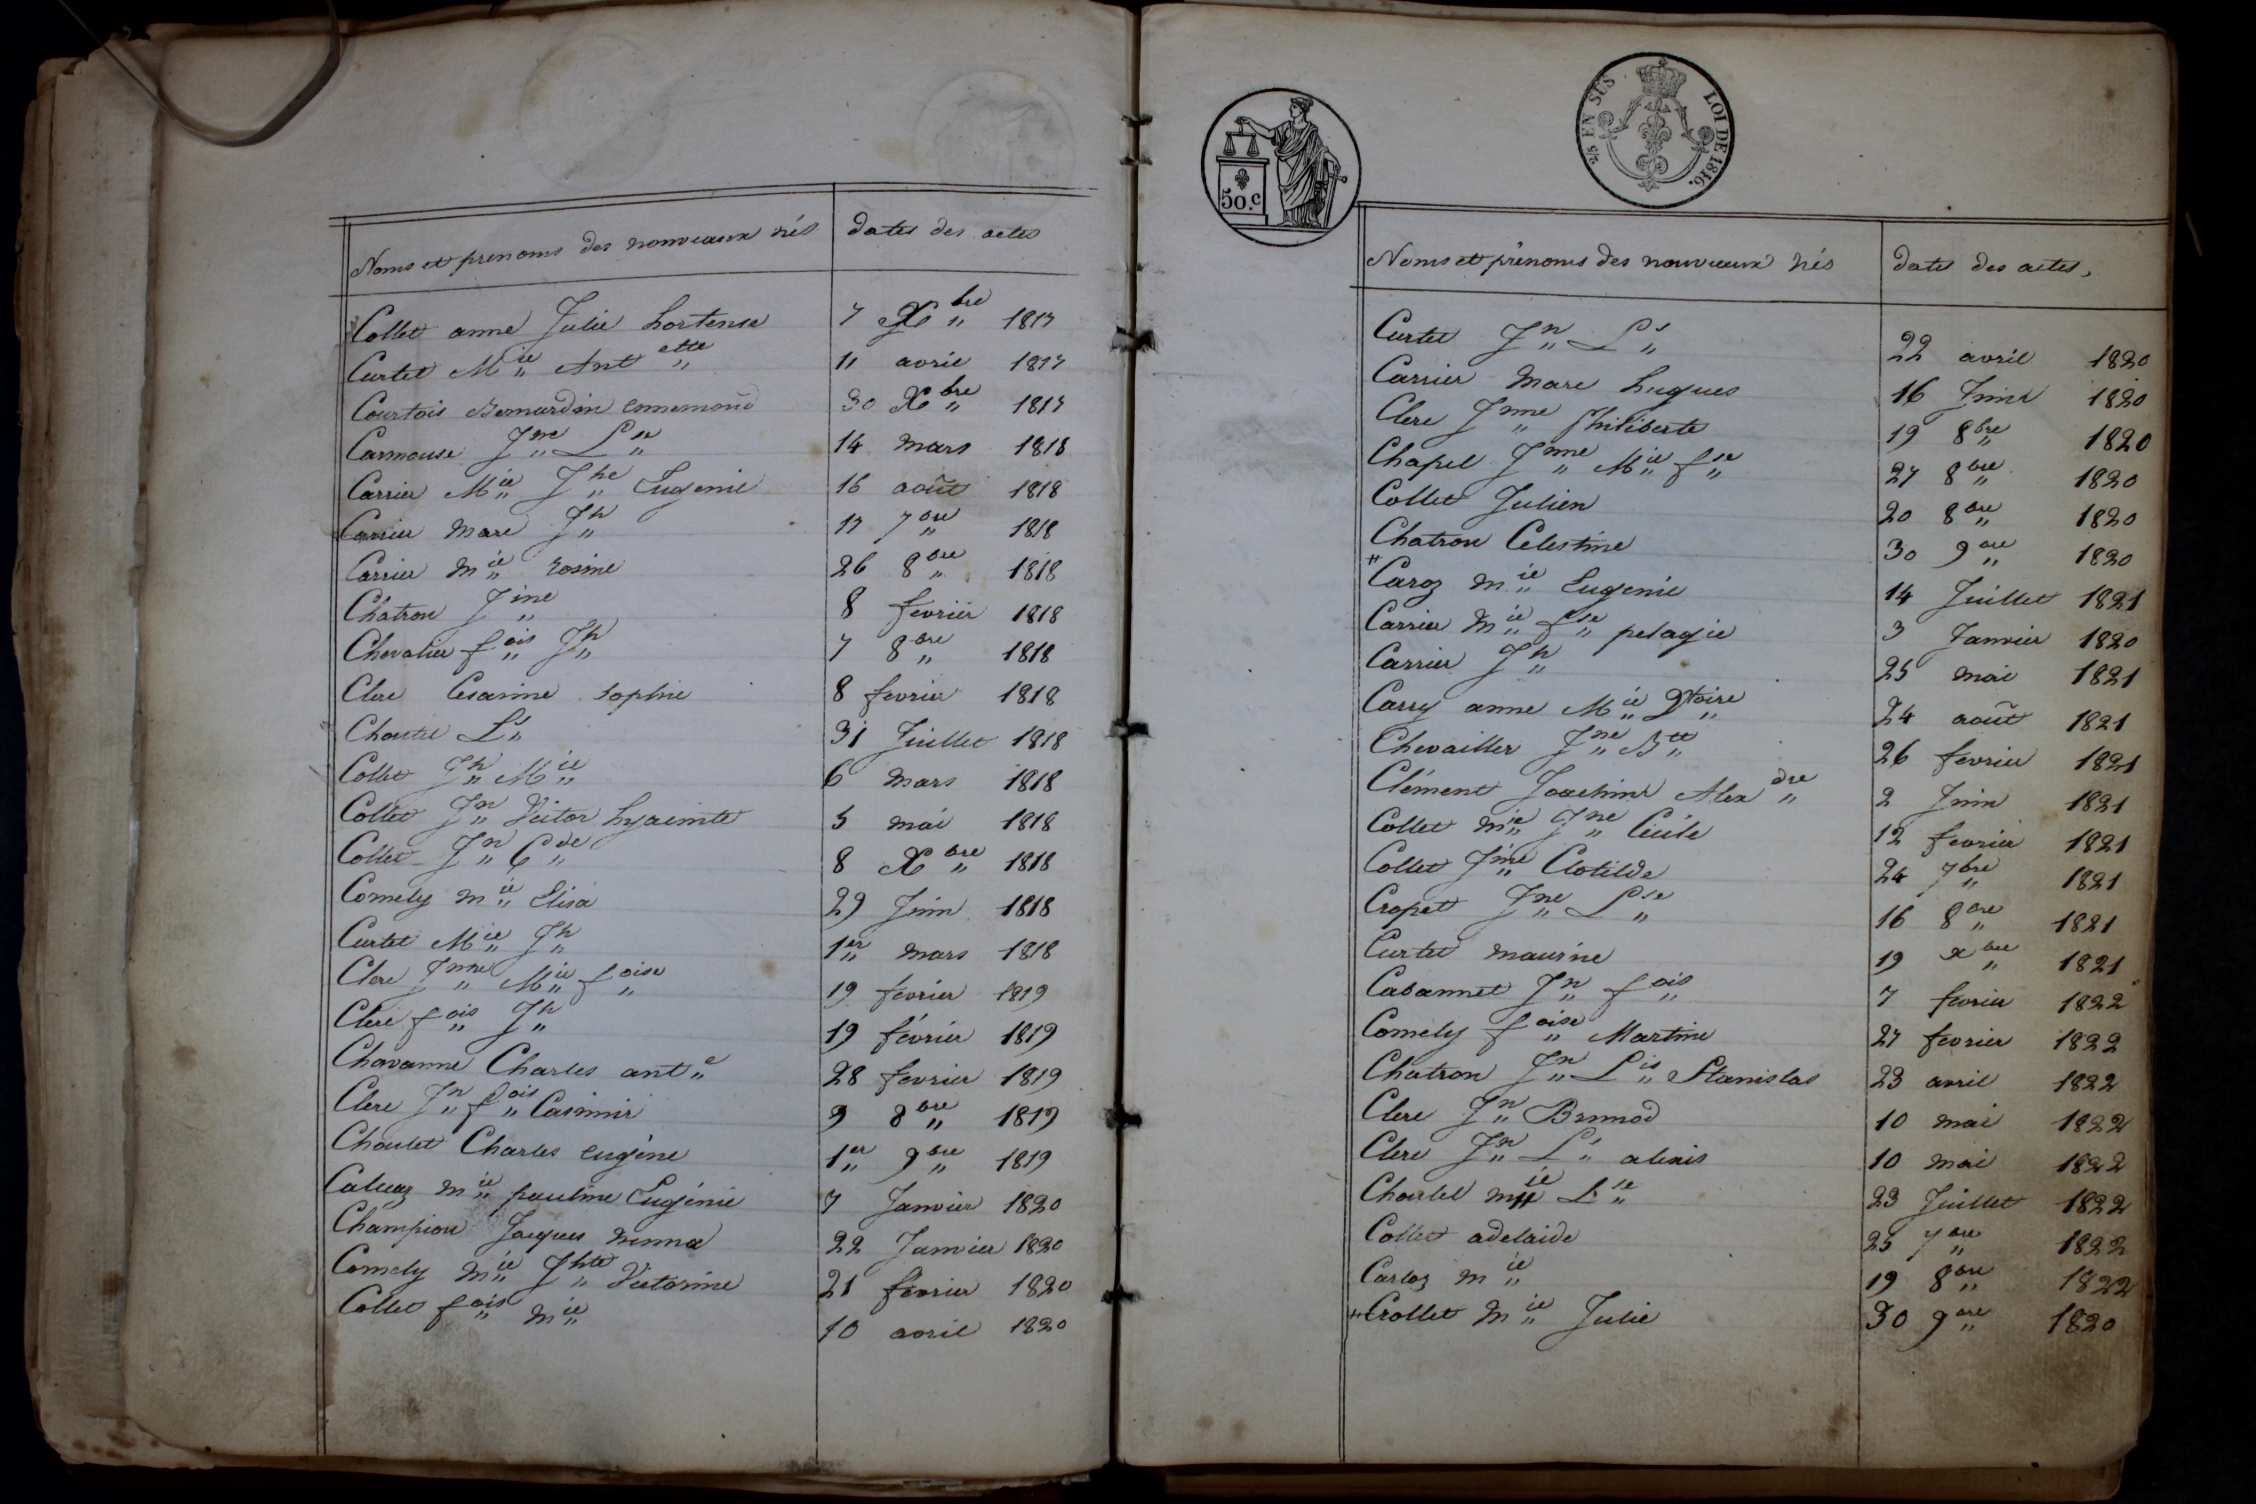 Noms et prenoms des nouveaux nés dates des actes
Collet anne Julie hortense 7 Xbre 1817
Curtet Mie Antette 11 avril 1817
Courtois Bernardin ennemond 30 Xbre 1817
Carmouse Jne Lse 14 mars 1818
Carrier Mie Jhe Eugenie 16 août 1818
Carrier Marc Jh 17 7bre 1818
Carrier mie rosine 26 8bre 1818
Chatron Jine 8 fevrier 1818
Chevalier fois Jh 7 8bre 1818
Clerc Cesarine sophie 8 fevrier 1818
Choutet Ls 31 Juillet 1818
Collet Jh Mie 6 mars 1818
Collet Jn Victor hyacinte 5 mai 1818
Collet Jn Cde 8 Xbre 1818
Comely mie Elisa 29 Juin 1818
Curtet Mie Jh 1er mars 1818
Clerc Jnne Mie foise 19 fevrier 1819
Clerc fois Jh 19 février 1819
Chavanne Charles ante 28 fevrier 1819
Clerc Jn fois Casimir 9 8bre 1819
Choulet Charles eugène 1er 9bre 1819
mie pauline Eugénie 7 Janvier 1820
Champion Jacques 22 Janvier 1820
Comely mie Jhte Victorine 21 février 1820
Collet fois mie 10 avril 1820
50.c
2/5 EN SUS LOI DE 1816.
Noms et prénoms des nouveaux nés dates des actes,
Curtet Jn Ls 22 avril 1820
Carrier Marc hugues 16 Juin 1820
Clerc Jnne Philiberte 19 8bre 1820
Chapel Jnne Mie fse 27 8bre 1820
Collet Julien 20 8bre 1820
Chatron Celestine 30 9bre 1820
Caroz mie Eugenie 14 Juillet 1821
Carrier Mie fse pelagie 3 Janvier 1820
Carrier Jh 25 mai 1821
Carry anne Mie Vtoire 24 août 1821
Chevailler Jne Bte 26 fevrier 1821
Clément Joachim Alexdre 2 Juin 1821
Collet mie Jne Cécile 12 fevrier 1821
Collet Jine Clotilde 24 7bre 1821
Cropet Jne Lse 16 8bre 1821
Curtet maurine 19 xbre 1821
Cabannet Jn fois 7 fevrier 1822
Comely foise Martine 27 fevrier 1822
Chatron Jn Lis Stanislas 23 avril 1822
Clerc Jn Brunod 10 mai 1822
Clerc Jn Ls alexis 10 mai 1822
Choulet mie Lse 23 Juillet 1822
Collet adelaide 25 7bre 1822
Carloz mie 19 8bre 1822
Crollet mie Julie 30 9bre 1820